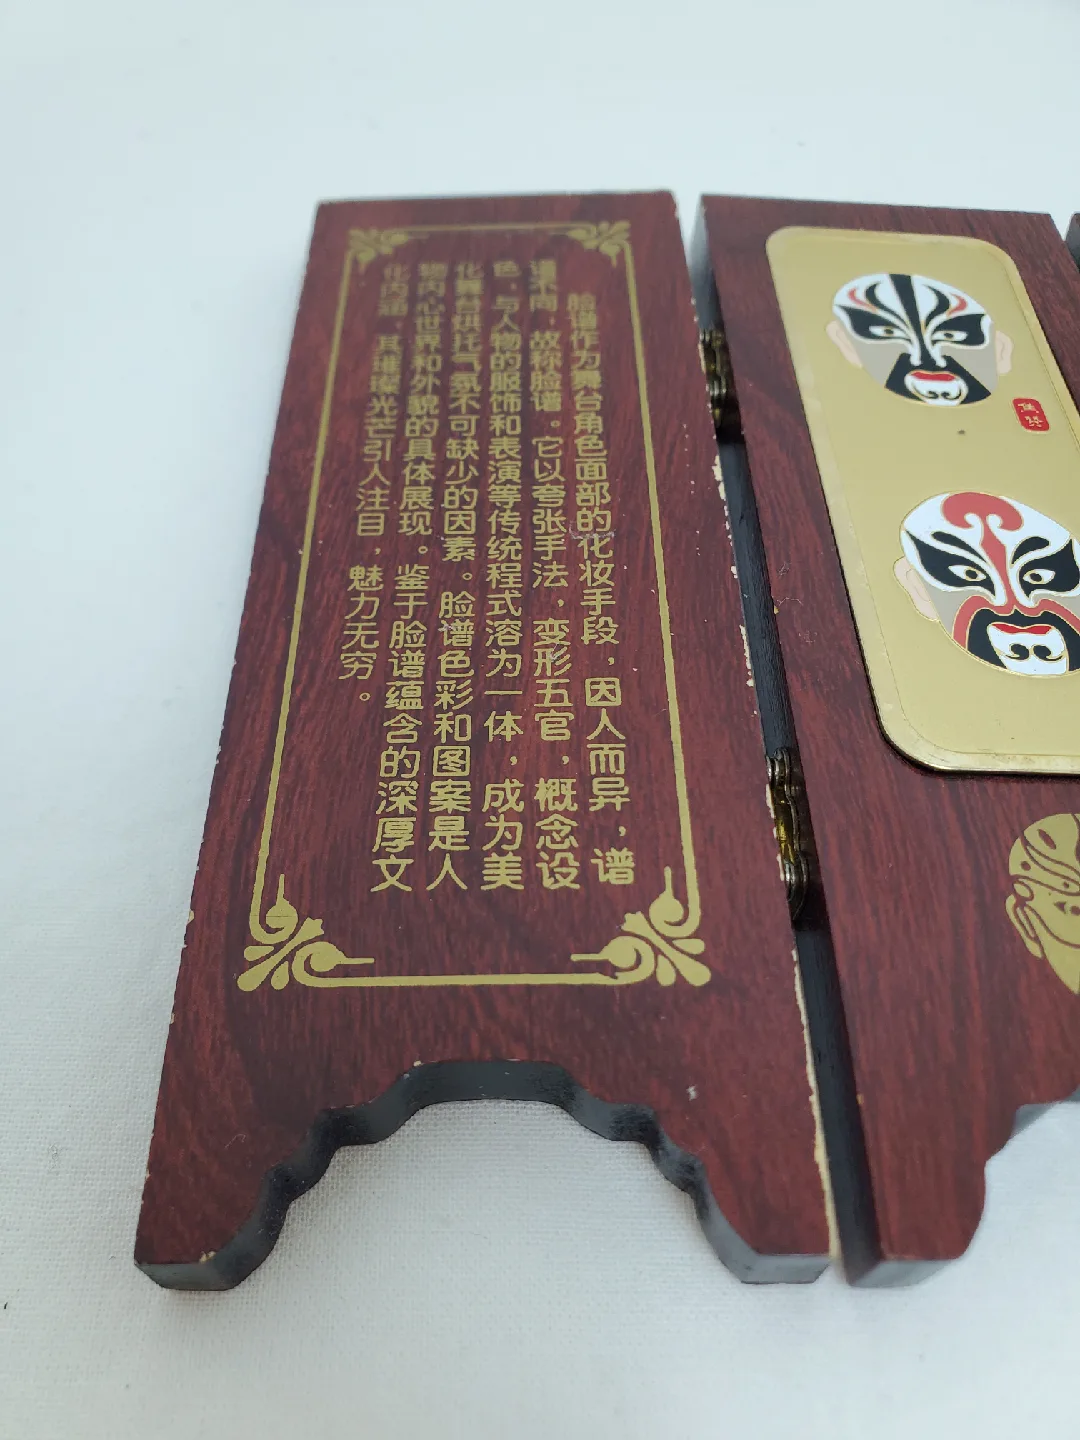 脸谱作为舞台角色面部的化妆手段，因人而异，谱
谱不同，故称脸谱。它以夸张手法，变形五官，概念设
色，与人物的服饰和表演等传统程式溶为一体，成为美
化舞台烘托气氛不可缺少的因素。脸谱色彩和图案是人
物内心世界和外貌的具体展现。鉴于脸谱蕴含的深厚文
化内涵，其璀璨光芒引人注目，魅力无穷。